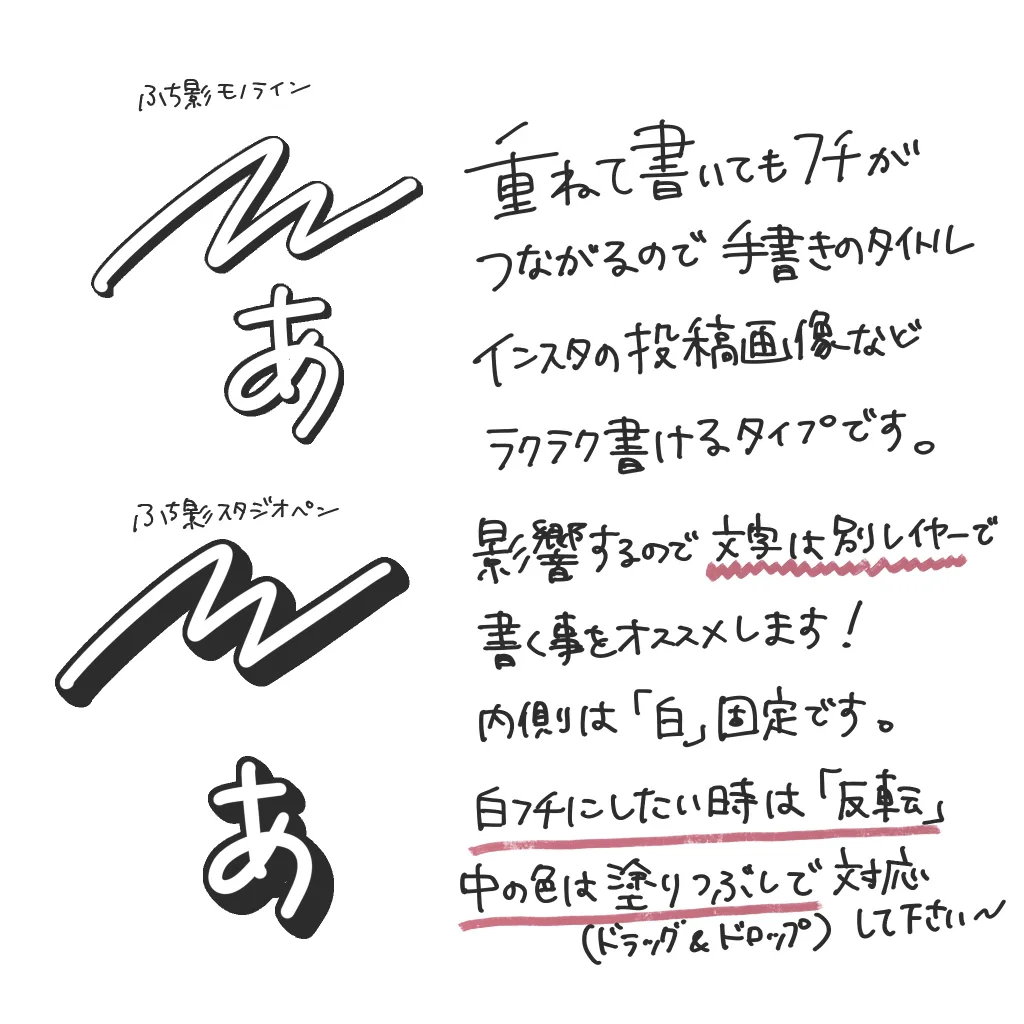 ふち影モノライン
あ
重ねて書いてもフチが
つながるので手書きのタイトル
インスタの投稿画像など
ラクラク書けるタイプです。
ふち影スタジオペン
あ
影響するので文字は別レイヤーで
書く事をオススメします!
内側は「白」固定です。
白フチにしたい時は「反転」
中の色は塗りつぶしで対応
(ドラッグ&ドロップ)して下さい〜